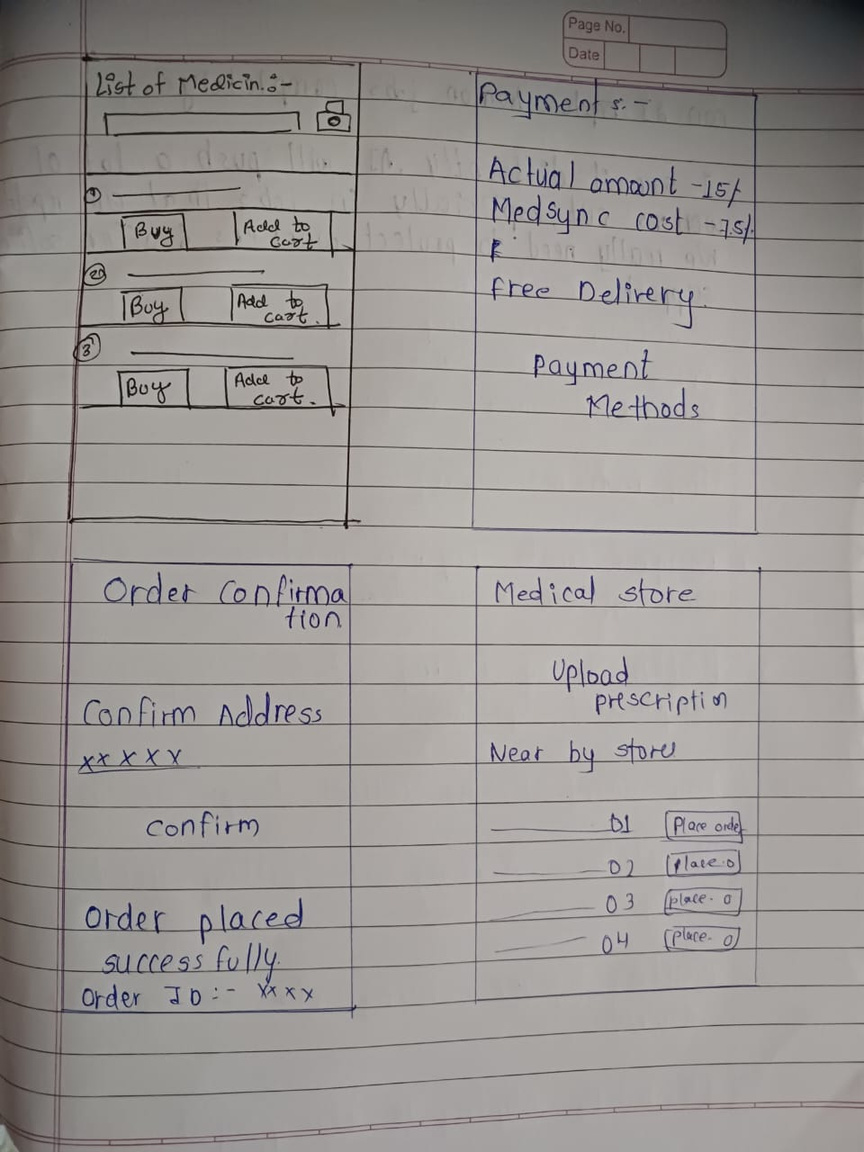 Page No.
Date
List of Medicin.:-
① 
Buy
Add to
cart
②
Buy
Add to
cart.
③
Buy
Add to
cart.
Payment s:-
Actual amount -15/
Medsync cost -7.5/
free Delivery.
Payment
Methods
Order Confirma
tion
Confirm Address
xx x x x
Confirm
Order placed
successfully.
Order ID:- xxxx
Medical store
Upload
prescription
Near by store
01 Place order
02 Place.o
03 place. o
04 place. o